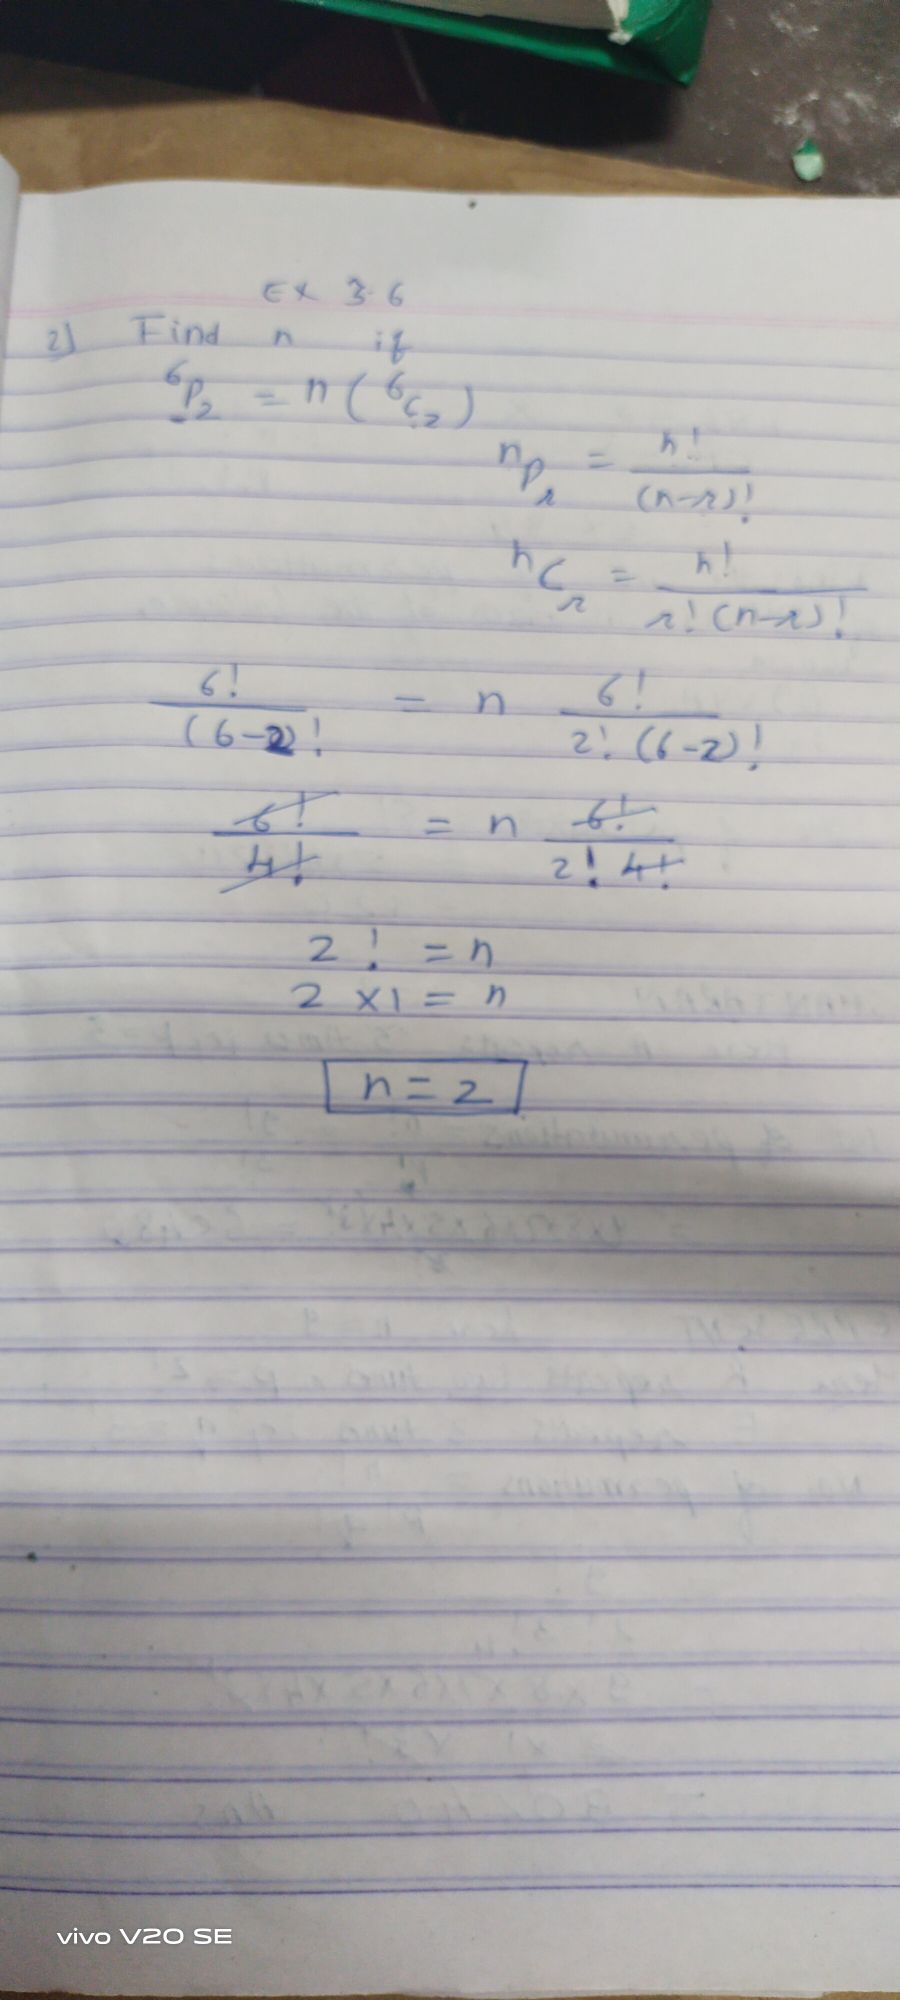 Ex 3.6
2) Find n if
⁶P₂ = n (⁶C₂)
ⁿPᵣ = n! / (n-r)!
ⁿCᵣ = n! / r! (n-r)!
6! / (6-2)! = n 6! / 2! (6-2)!
6! / 4! = n 6! / 2! 4!
2! = n
2 × 1 = n
n = 2
vivo V20 SE